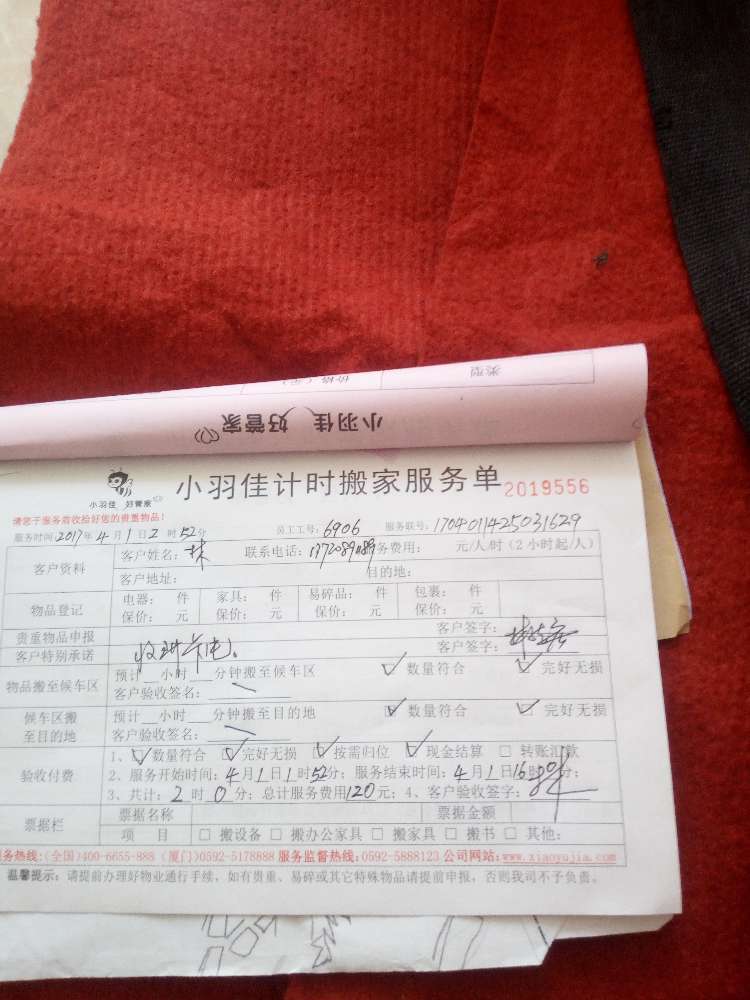 类型
价格（元）
小羽佳 好管家
小羽佳 好管家
小羽佳计时搬家服务单 2019556
请您于服务前收拾好您的贵重物品！
服务时间：2017年4月1日2时52分 员工工号：6906 服务联号：1704011425031629
客户资料 客户姓名：林 联系电话： 务费用： 元/人/时（2小时起/人）
客户地址： 目的地：
物品登记 电器： 件 家具： 件 易碎品： 件 包裹： 件
保价： 元 保价： 元 保价： 元 保价： 元
贵重物品申报 客户签字：
客户特别承诺 客户签字：
物品搬至候车区 预计__小时___分钟搬至候车区 ☑数量符合 ☑完好无损
客户验收签名：
候车区搬至目的地 预计__小时___分钟搬至目的地 ☑数量符合 ☑完好无损
客户验收签名：
验收付费 1、☑数量符合 ☑完好无损 ☑按需归位 ☑现金结算 □ 转账汇款
2、服务开始时间：4月1日1时52分；服务结束时间：4月1日16时 分；
3、共计：2时0分；总计服务费用120元；4、客户验收签字：
票据栏 票据名称 票据金额
项 目 □ 搬设备 □ 搬办公家具 □ 搬家具 □ 搬书 □ 其他：
务热线：（全国）400-6655-888（厦门）0592-5178888 服务监督热线：0592-5888123 公司网站：www.xiaoyujia.com
温馨提示：请提前办理好物业通行手续，如有贵重、易碎或其它特殊物品请提前申报，否则我司不予负责。